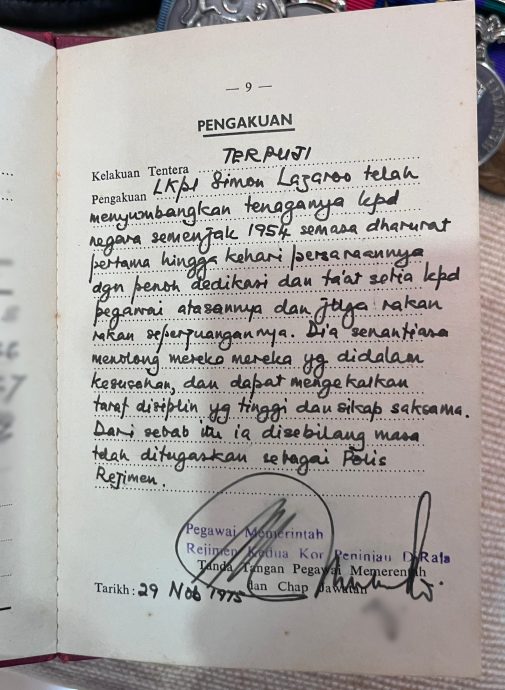 — 9 —
PENGAKUAN
Kelakuan Tentera TERPUJI
Pengakuan LKpl Simon Lazaroo telah
menyumbangkan tenaganya kpd
negara semenjak 1954 semasa dharurat
pertama hingga kehari persaraannya
dgn penoh dedikasi dan ta'at setia kpd
pegawai atasannya dan juga rakan
rakan seperjuangannya. Dia senantiasa
menolong mereka mereka yg didalam
kesusahan, dan dapat mengekalkan
taraf disiplin yg tinggi dan sikap saksama.
Dari sebab itu ia disebilang masa
telah ditugaskan sebagai Polis
Rejimen.
Pegawai Memerintah
Rejimen Kedua Kor Peninjau DiRaja
Tanda Tangan Pegawai Memerentah
dan Chap Jawatan
Tarikh: 29 Nob 1975